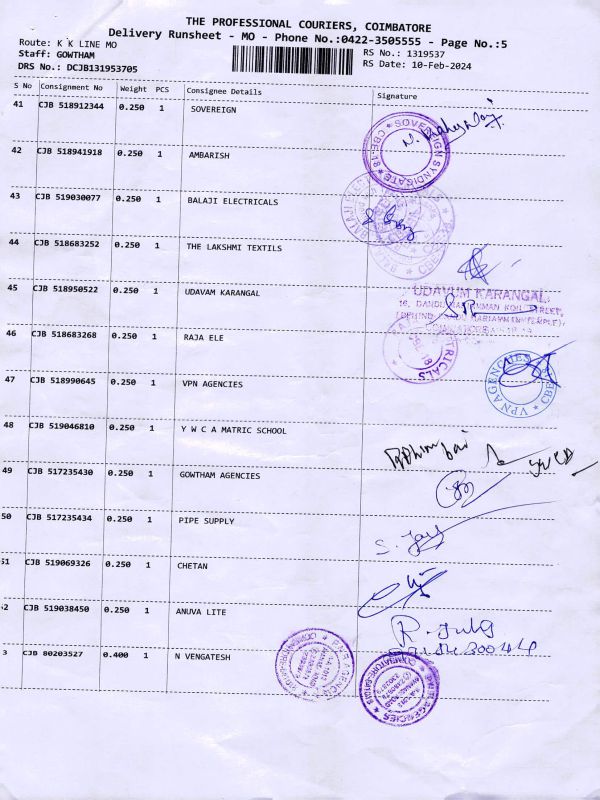 THE PROFESSIONAL COURIERS, COIMBATORE
Delivery Runsheet - MO - Phone No.:0422-3505555 - Page No.:5
Route: K K LINE MO
Staff: GOWTHAM
DRS No.: DCJB131953705
RS No.: 1319537
RS Date: 10-Feb-2024
S No Consignment No Weight PCS Consignee Details Signature
41 CJB 518912344 0.250 1 SOVEREIGN
SOVEREIGN SYNDICATE
42 CJB 518941918 0.250 1 AMBARISH
43 CJB 519030077 0.250 1 BALAJI ELECTRICALS
44 CJB 518683252 0.250 1 THE LAKSHMI TEXTILS
45 CJB 518950522 0.250 1 UDAVAM KARANGAL
UDAVUM KARANGAL,
46 CJB 518683268 0.250 1 RAJA ELE
47 CJB 518990645 0.250 1 VPN AGENCIES
VPN AGENCIES
48 CJB 519046810 0.250 1 Y W C A MATRIC SCHOOL
49 CJB 517235430 0.250 1 GOWTHAM AGENCIES
50 CJB 517235434 0.250 1 PIPE SUPPLY
51 CJB 519069326 0.250 1 CHETAN
52 CJB 519038450 0.250 1 ANUVA LITE
3 CJB 80203527 0.400 1 N VENGATESH